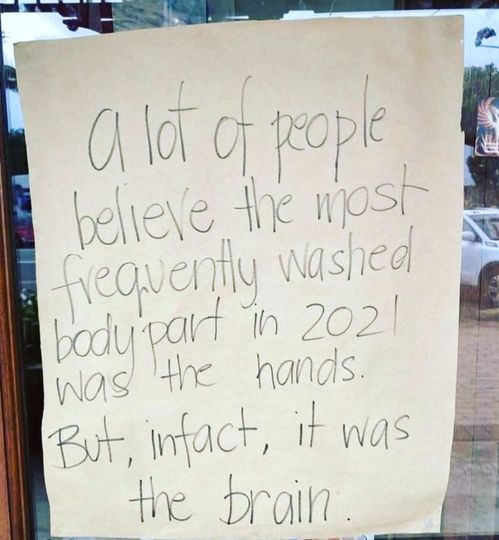 a lot of people
believe the most
frequently washed
body part in 2021
was the hands.
But, infact, it was
the brain.